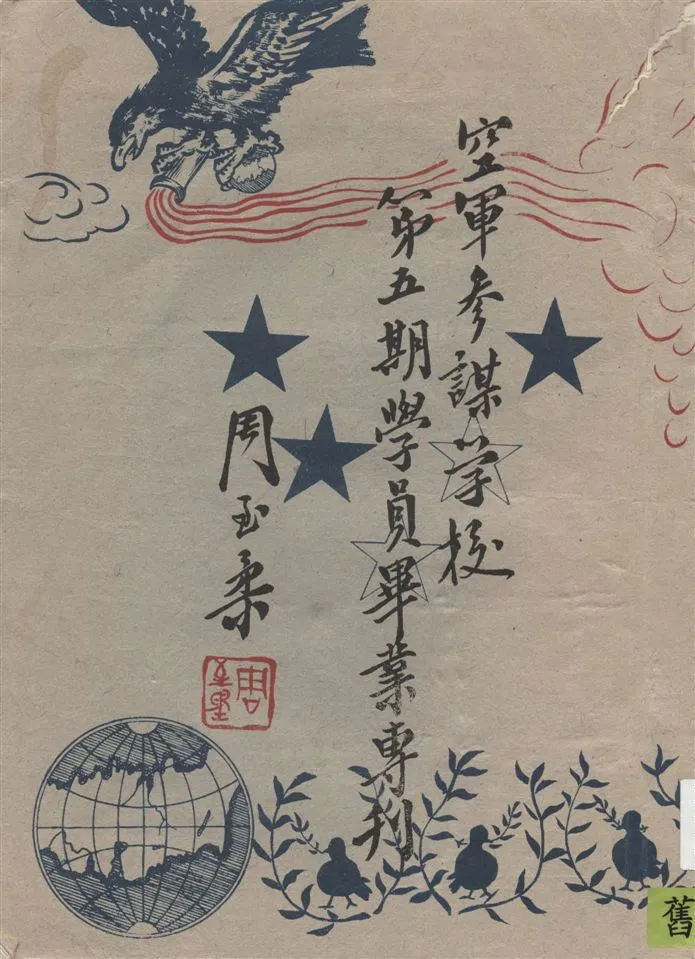 空軍参謀学校
第五期學員畢業專刊
周至柔
周至
舊